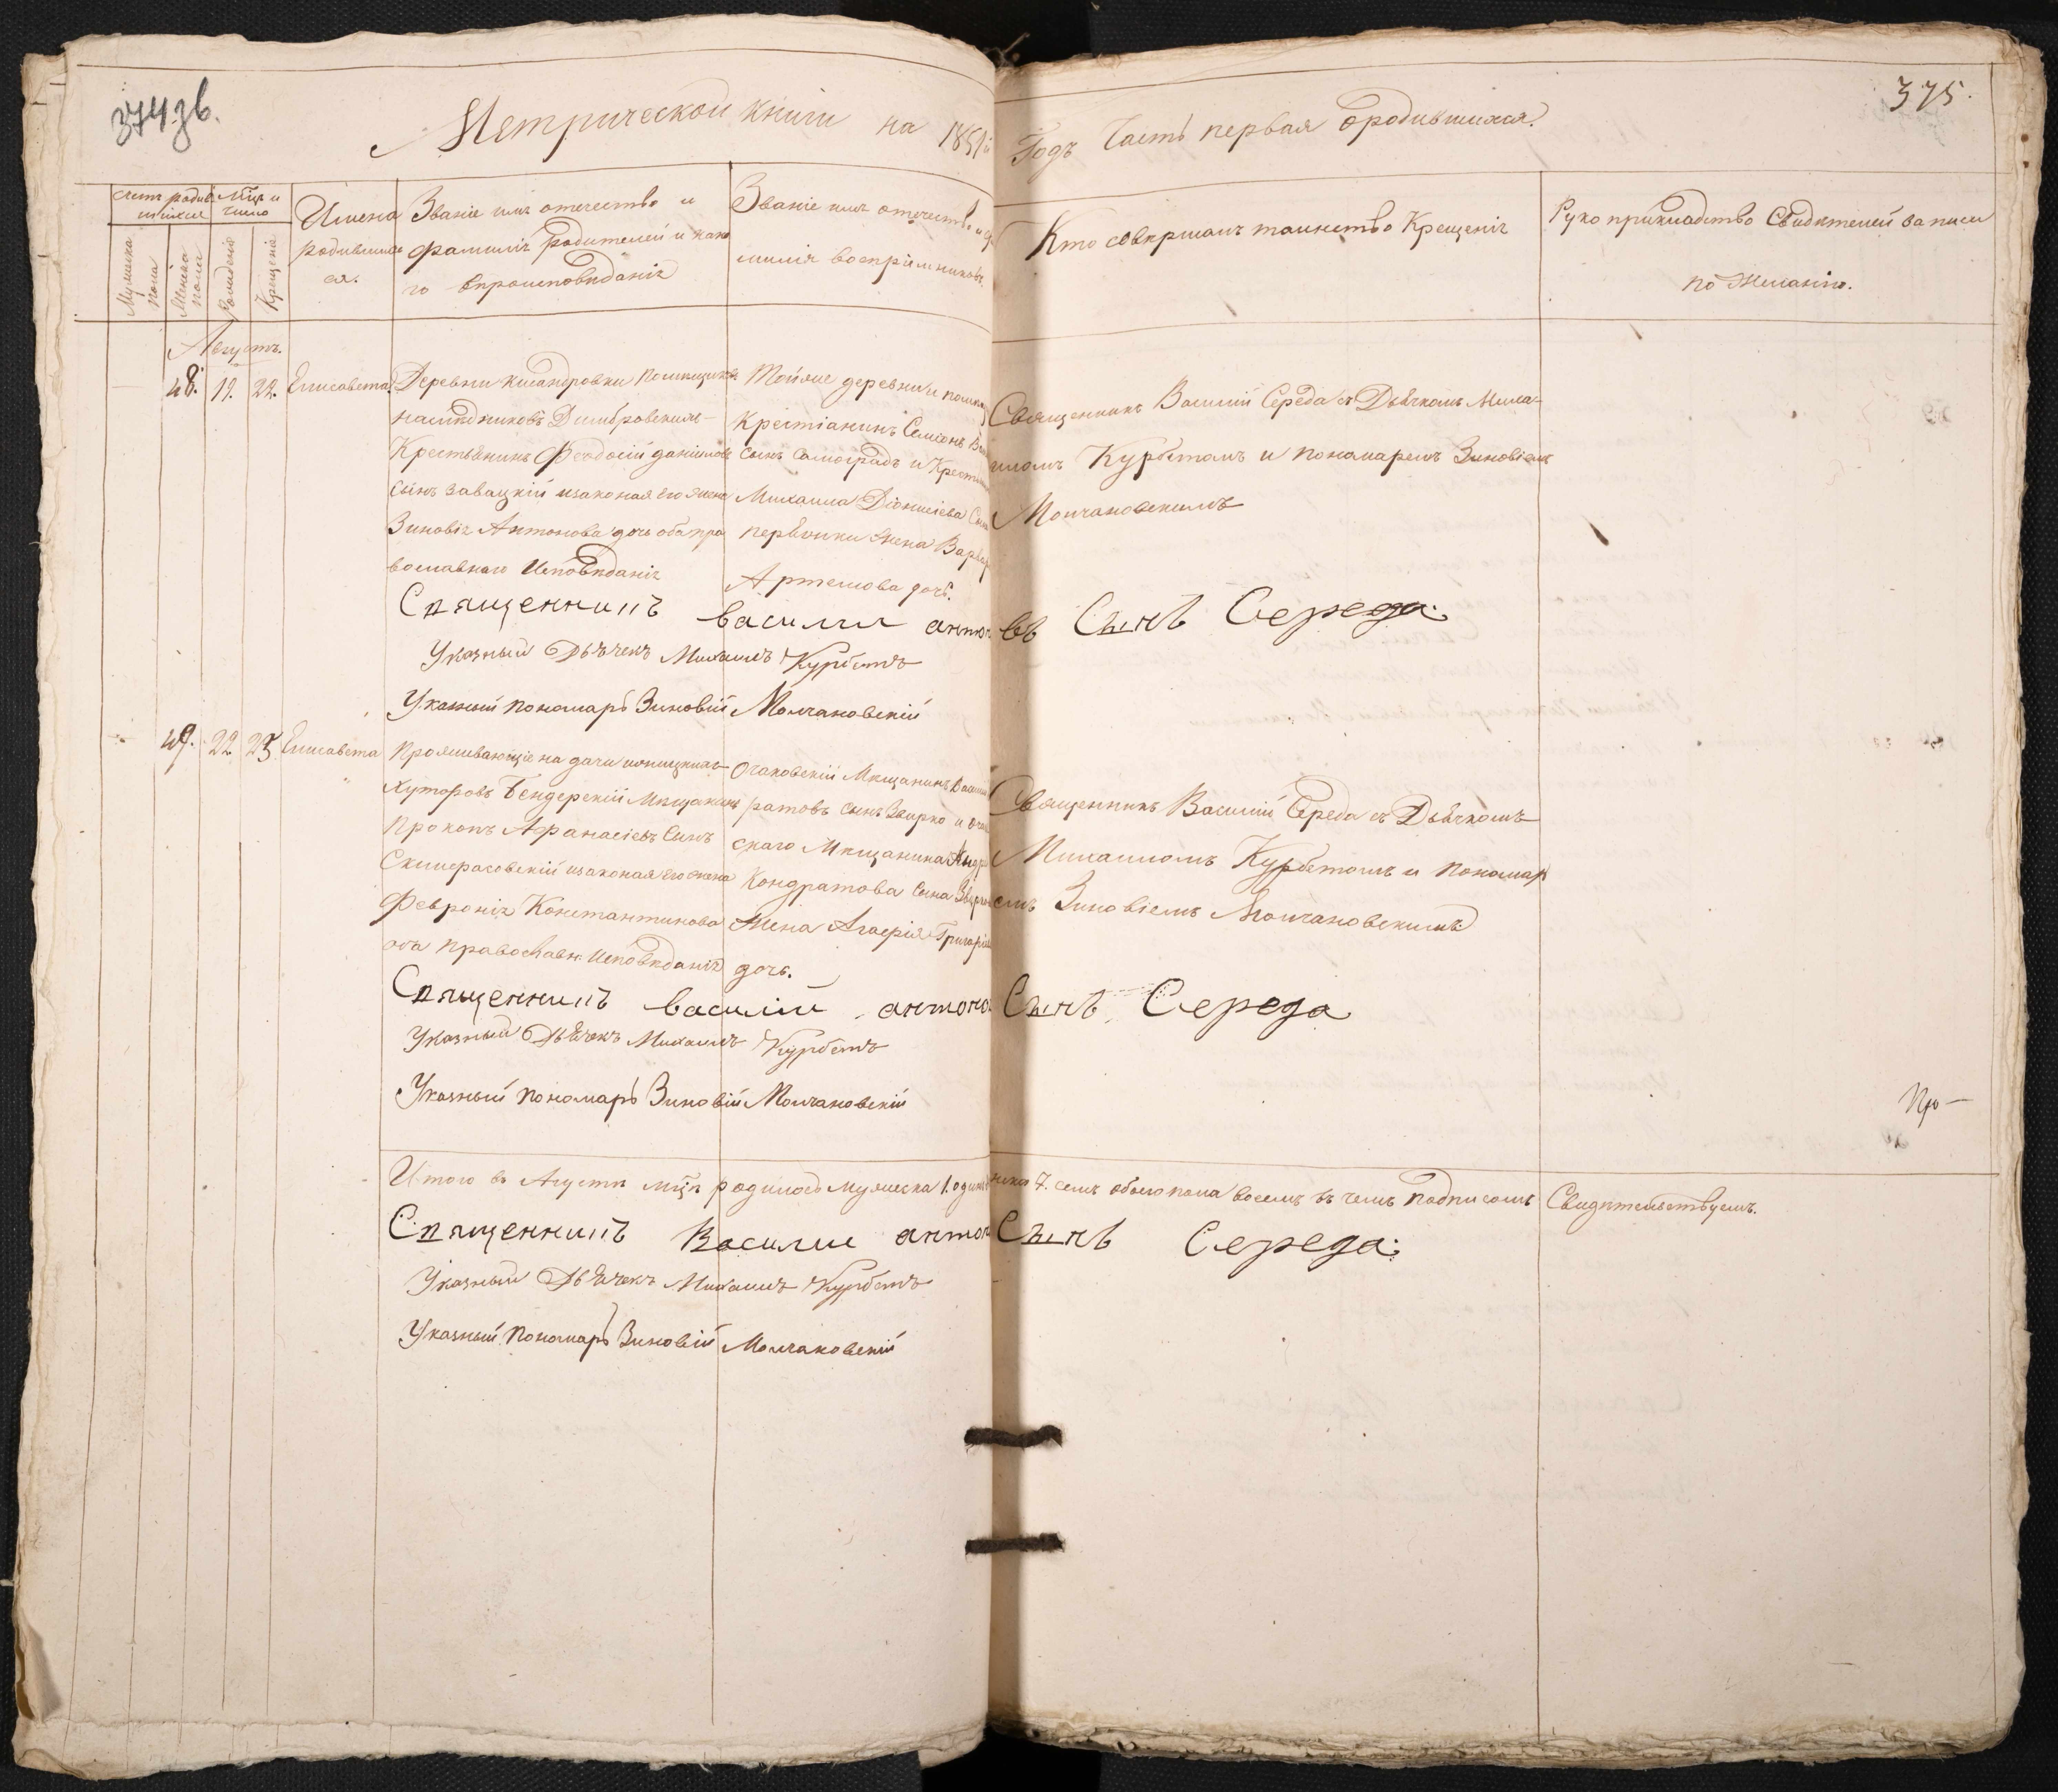 374 зв.
375.
Метрической книги на 1851й
Годъ Часть первая о родившихся.
Счетъ родив
шихся
Мца и
число
Мужеска
пола
Женска
пола
Рожденія
Крещенія
Имена
родивших
ся.
Званіе имя отечество и
фамилія родителей и како
го вѣроисповѣданія
Званіе имя отечество и фа
милія воспріемниковъ.
Кто совершалъ таинство Крещенія
Рукоприкладство Свидѣтелей записи
по Желанію.
Августъ.
48. 19. 22. Елисавета
Деревни Помѣщика
наслѣдниковъ
Крестьянинъ Феодосій Даніиловъ
сынъ Завацкій и законая его жена
Зиновія Антонова дочь оба пра
вославнаго Исповѣданія
Той же деревни и помѣщ
Крестіанинъ Семіонъ
сынъ Самоградъ и Крестья
Михаила Діонисіева Сына
жена Варвар
Артемова дочь.
Священникъ Василій Середа съ Дьячкомъ Миха-
иломъ Курбетомъ и пономаремъ Зиновіемъ
Молчановскимъ
Священникъ Василий антоновъ Сынъ Середа.
Указный Дьячекъ Михаилъ Курбетъ
Указный пономарь Зиновій Молчановскій
49. 22. 23. Елисавета
Проживающіе на дачи
Хуторовъ Бендерскій Мѣщанинъ
Прокопъ Афанасіевъ Сынъ
и законая его жена
Февронія Константинова
оба православн: Исповѣданія
Очаковскій Мѣщанинъ
ратовъ сынъ Звирко и Очаков
скаго Мѣщанина Андр
Кондратова Сына Звирко
Жена Агафія Григоріева
дочь.
Священникъ Василій Середа съ Дьячкомъ
Михаиломъ Курбетомъ и пономар
емъ Зиновіемъ Молчановскимъ
Священникъ василій антоно Сынъ Середа
Указный Дьячекъ Михаилъ Курбетъ
Указный пономарь Зиновій Молчановскій
Про-
Итого въ Августѣ мцѣ родилось мужеска 1. одинъ женска 7. семь обоего пола восемь въ чемъ подписомъ Свидѣтельствуемъ.
Священникъ Василие антон Сынъ Середа.
Указный Дьячекъ Михаилъ Курбетъ
Указный пономарь Зиновій Молчановскій